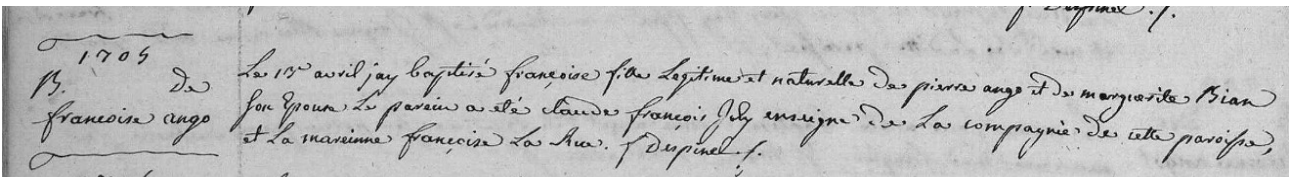 Despinel ./.
1705
B. de
francoise ango
Le 13e avril jay baptisé françoise fille Legitime et naturelle de pierre ango et de marguerite Bian
son Epouse Le parein a eté claude françois July enseigne de La compagnie de cette paroisse,
et La mareinne françoise La Rue. / Despinel ./.